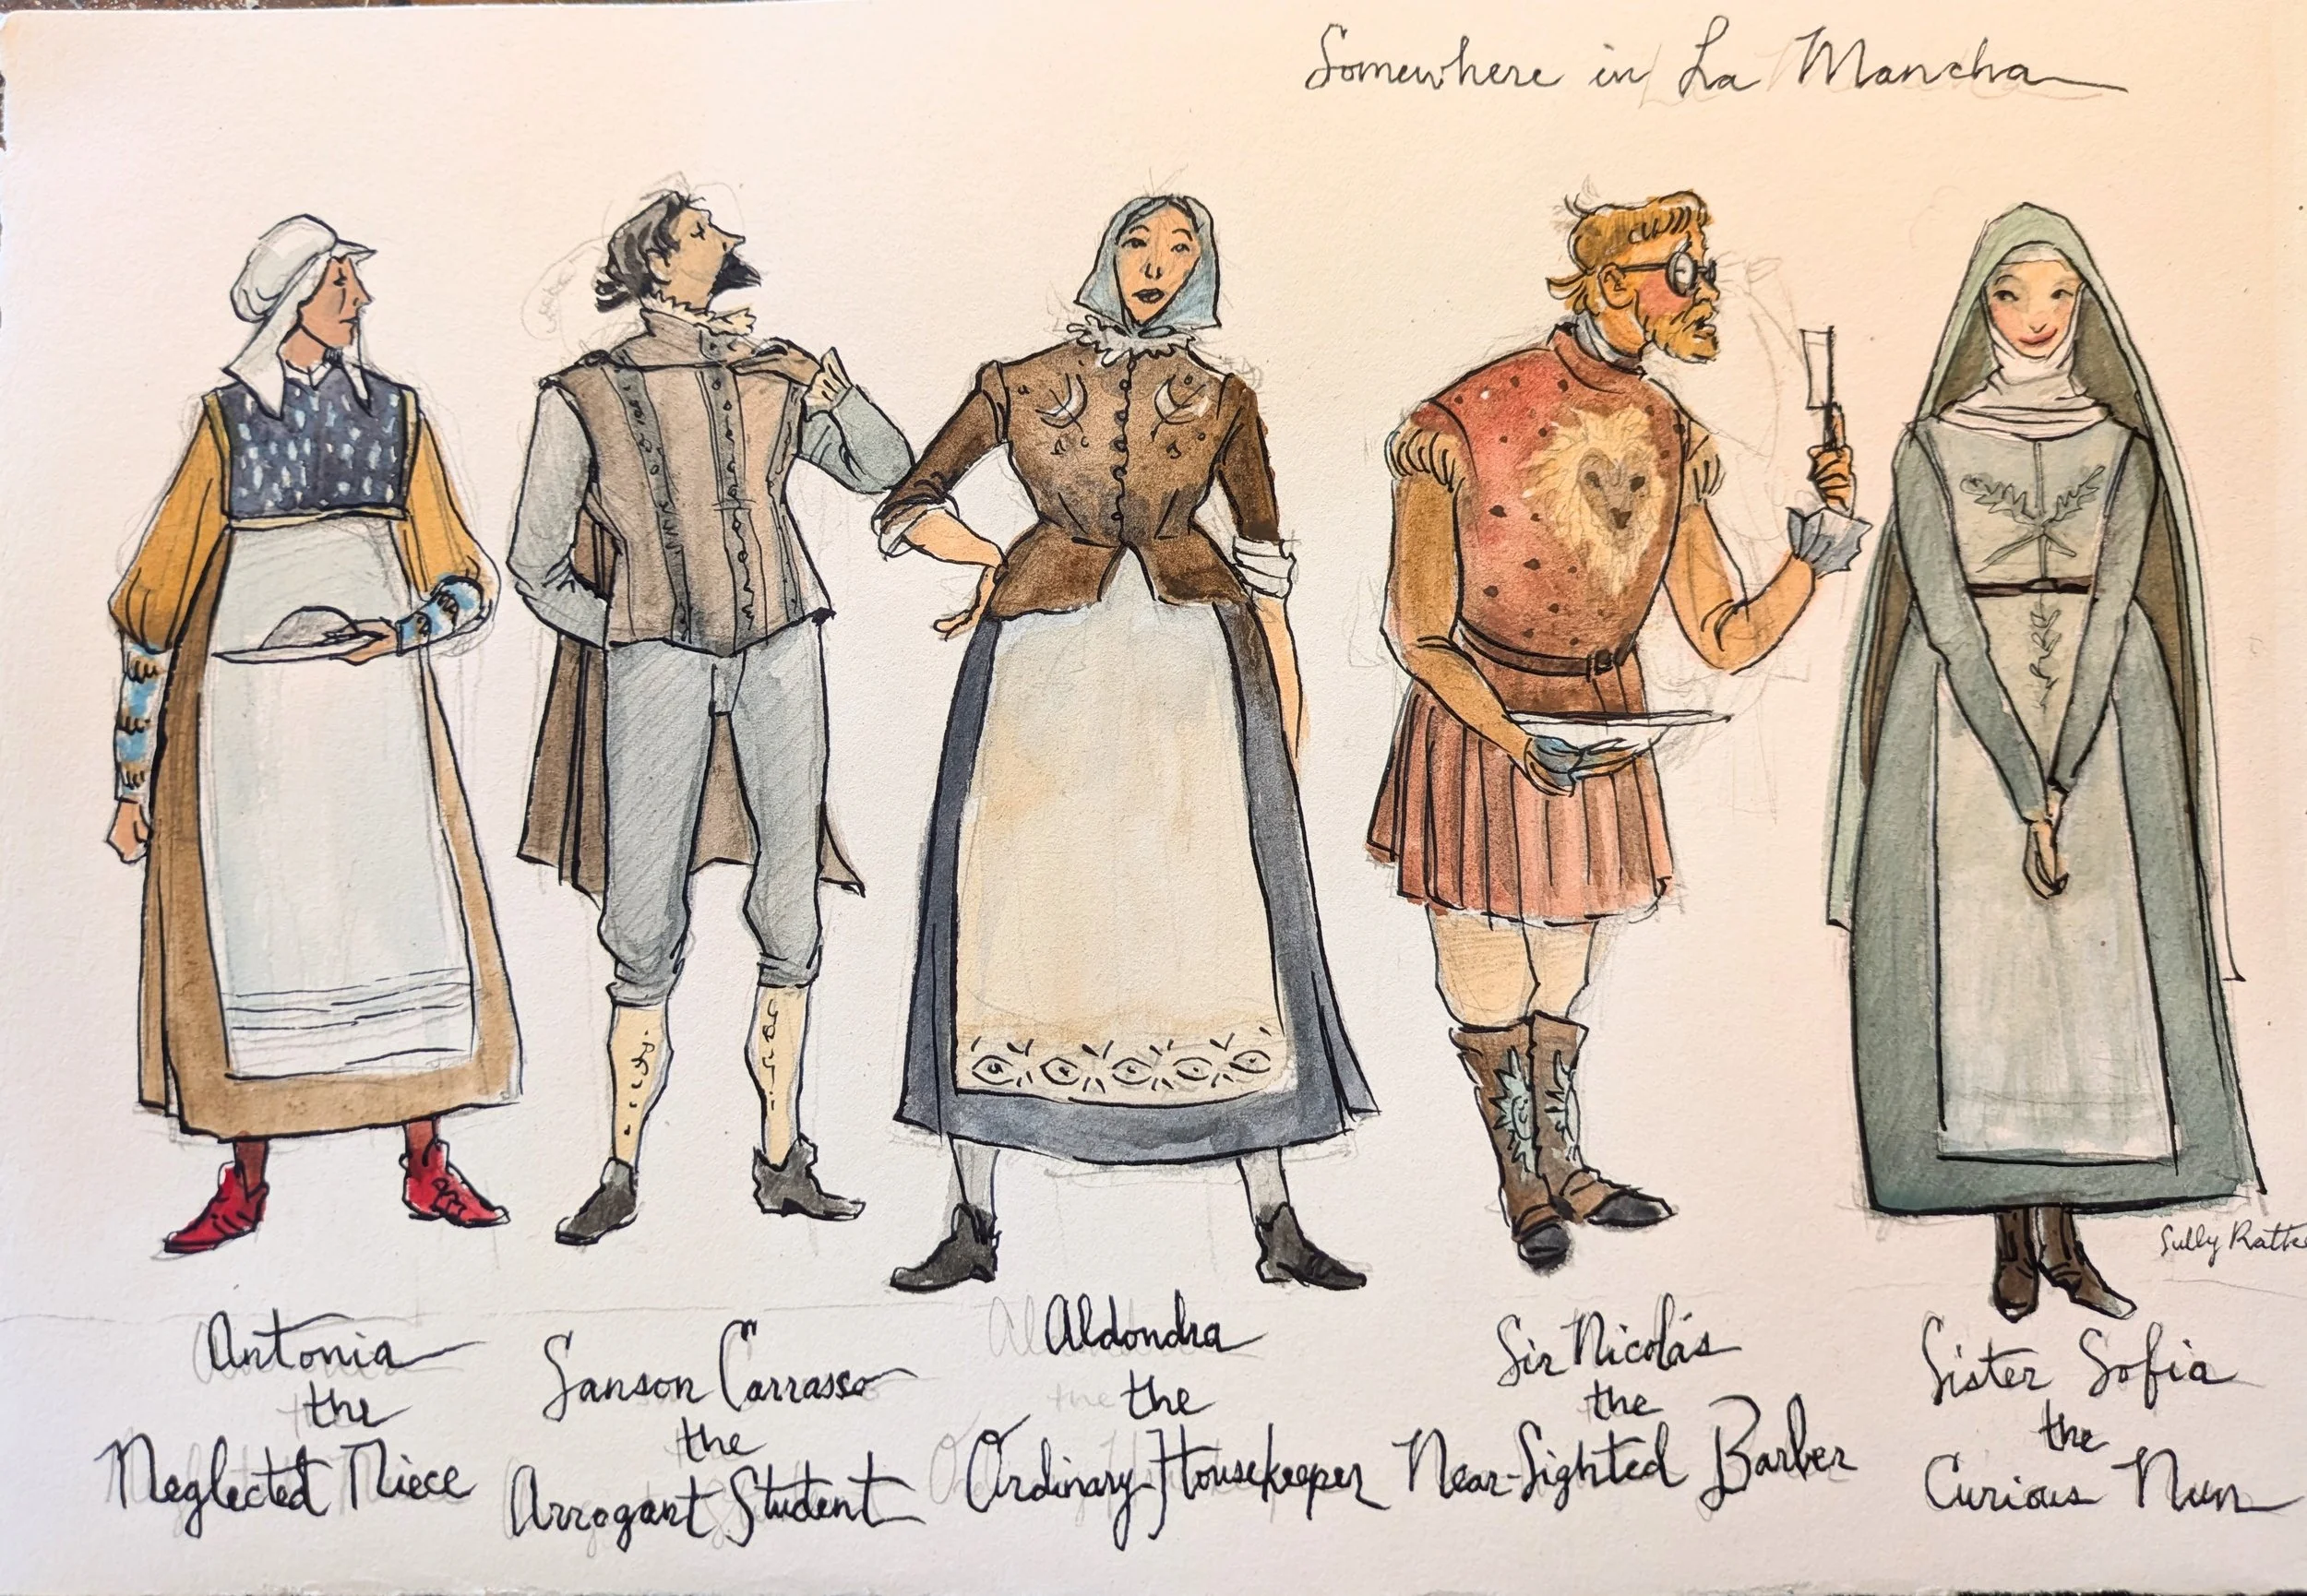 Somewhere in La Mancha
Antonia
the
Neglected Niece
Sanson Carrasso
the
Arrogant Student
Aldondra
the
Ordinary Housekeeper
Sir Nicolás
the
Near-Sighted Barber
Sister Sofia
the
Curious Nun
Sully